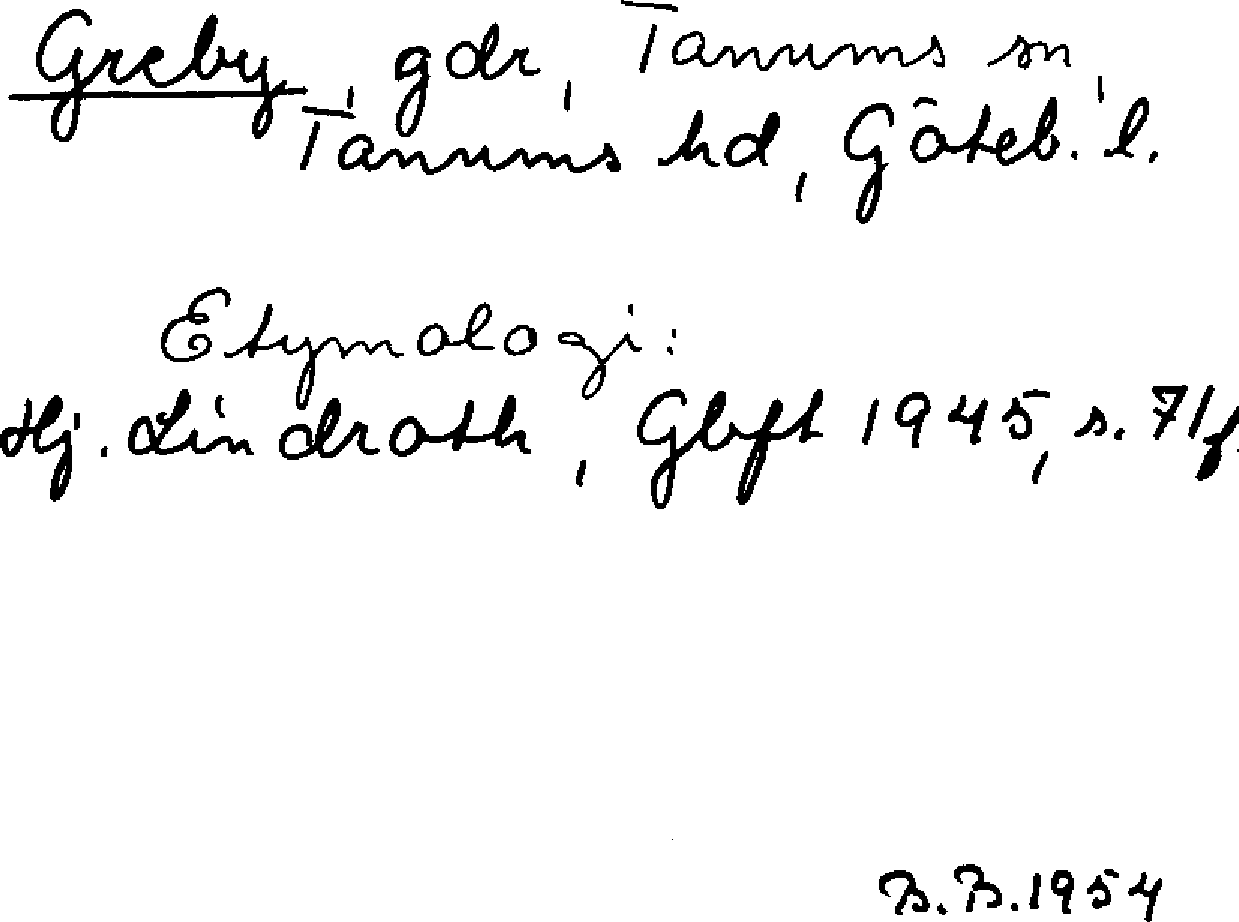 Greby, gdr, Tanums sn,
Tanums hd, Göteb. l.
Etymologi:
Hj. Lindroth, Gbft 1945, s. 71f.
B.B.1954